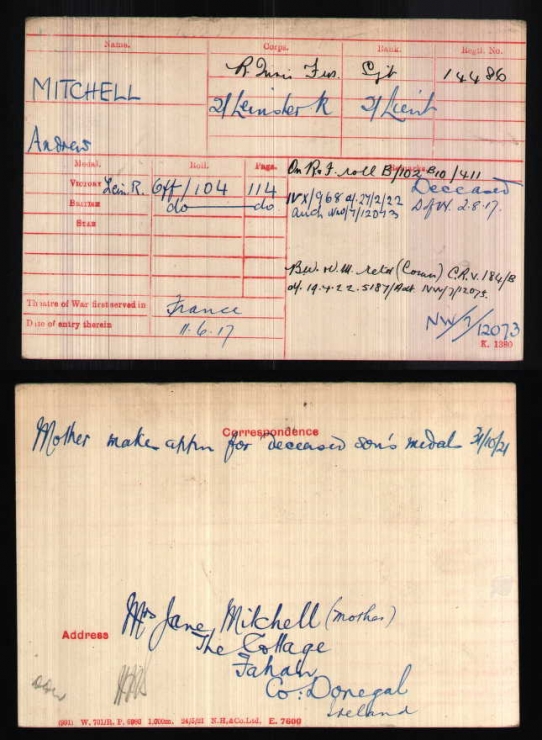 Name. Corps. Rank. Regtl. No.
MITCHELL R Innis Fus. Sjt 14486
2/Leinster R 2/Lieut
Andrew
Medal. Roll. Page.
VICTORY Lein. R. Off/104 114
BRITISH do do
STAR
On R.I.F. roll B/102 B10/411
Deceased
IVX/968 d/27/2/22 D of W. 2.8.17.
auth NW/7/12073
B.W. & V.M. retd (Comm) C.R.V. 184/B
d/. 19.4.22. 5187/Adt. NW/7/12073.
Theatre of War first served in France
Date of entry therein 11.6.17
NW/7/12073
K. 1380
Correspondence
Mother makes appn for deceased son's medal 31/10/21
Mrs Jane Mitchell (mother)
Address The Cottage
Fahan
Co: Donegal
Ireland
N.H.&Co.Ltd. E. 7609